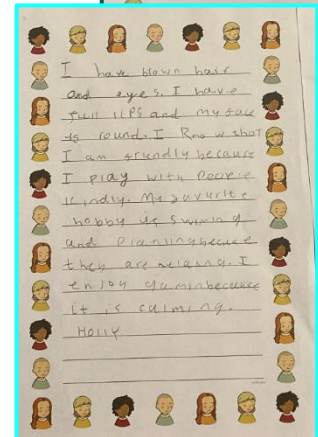 I have brown hair
and eyes. I have
full lips and my face
is round. I Know that
I am friendly because
I play with people
kindly. My favurite
hobby is Swiming
and Dianjingbecuse
they are relaxing. I
enjoy gaminbecause
it is calming.
Holly